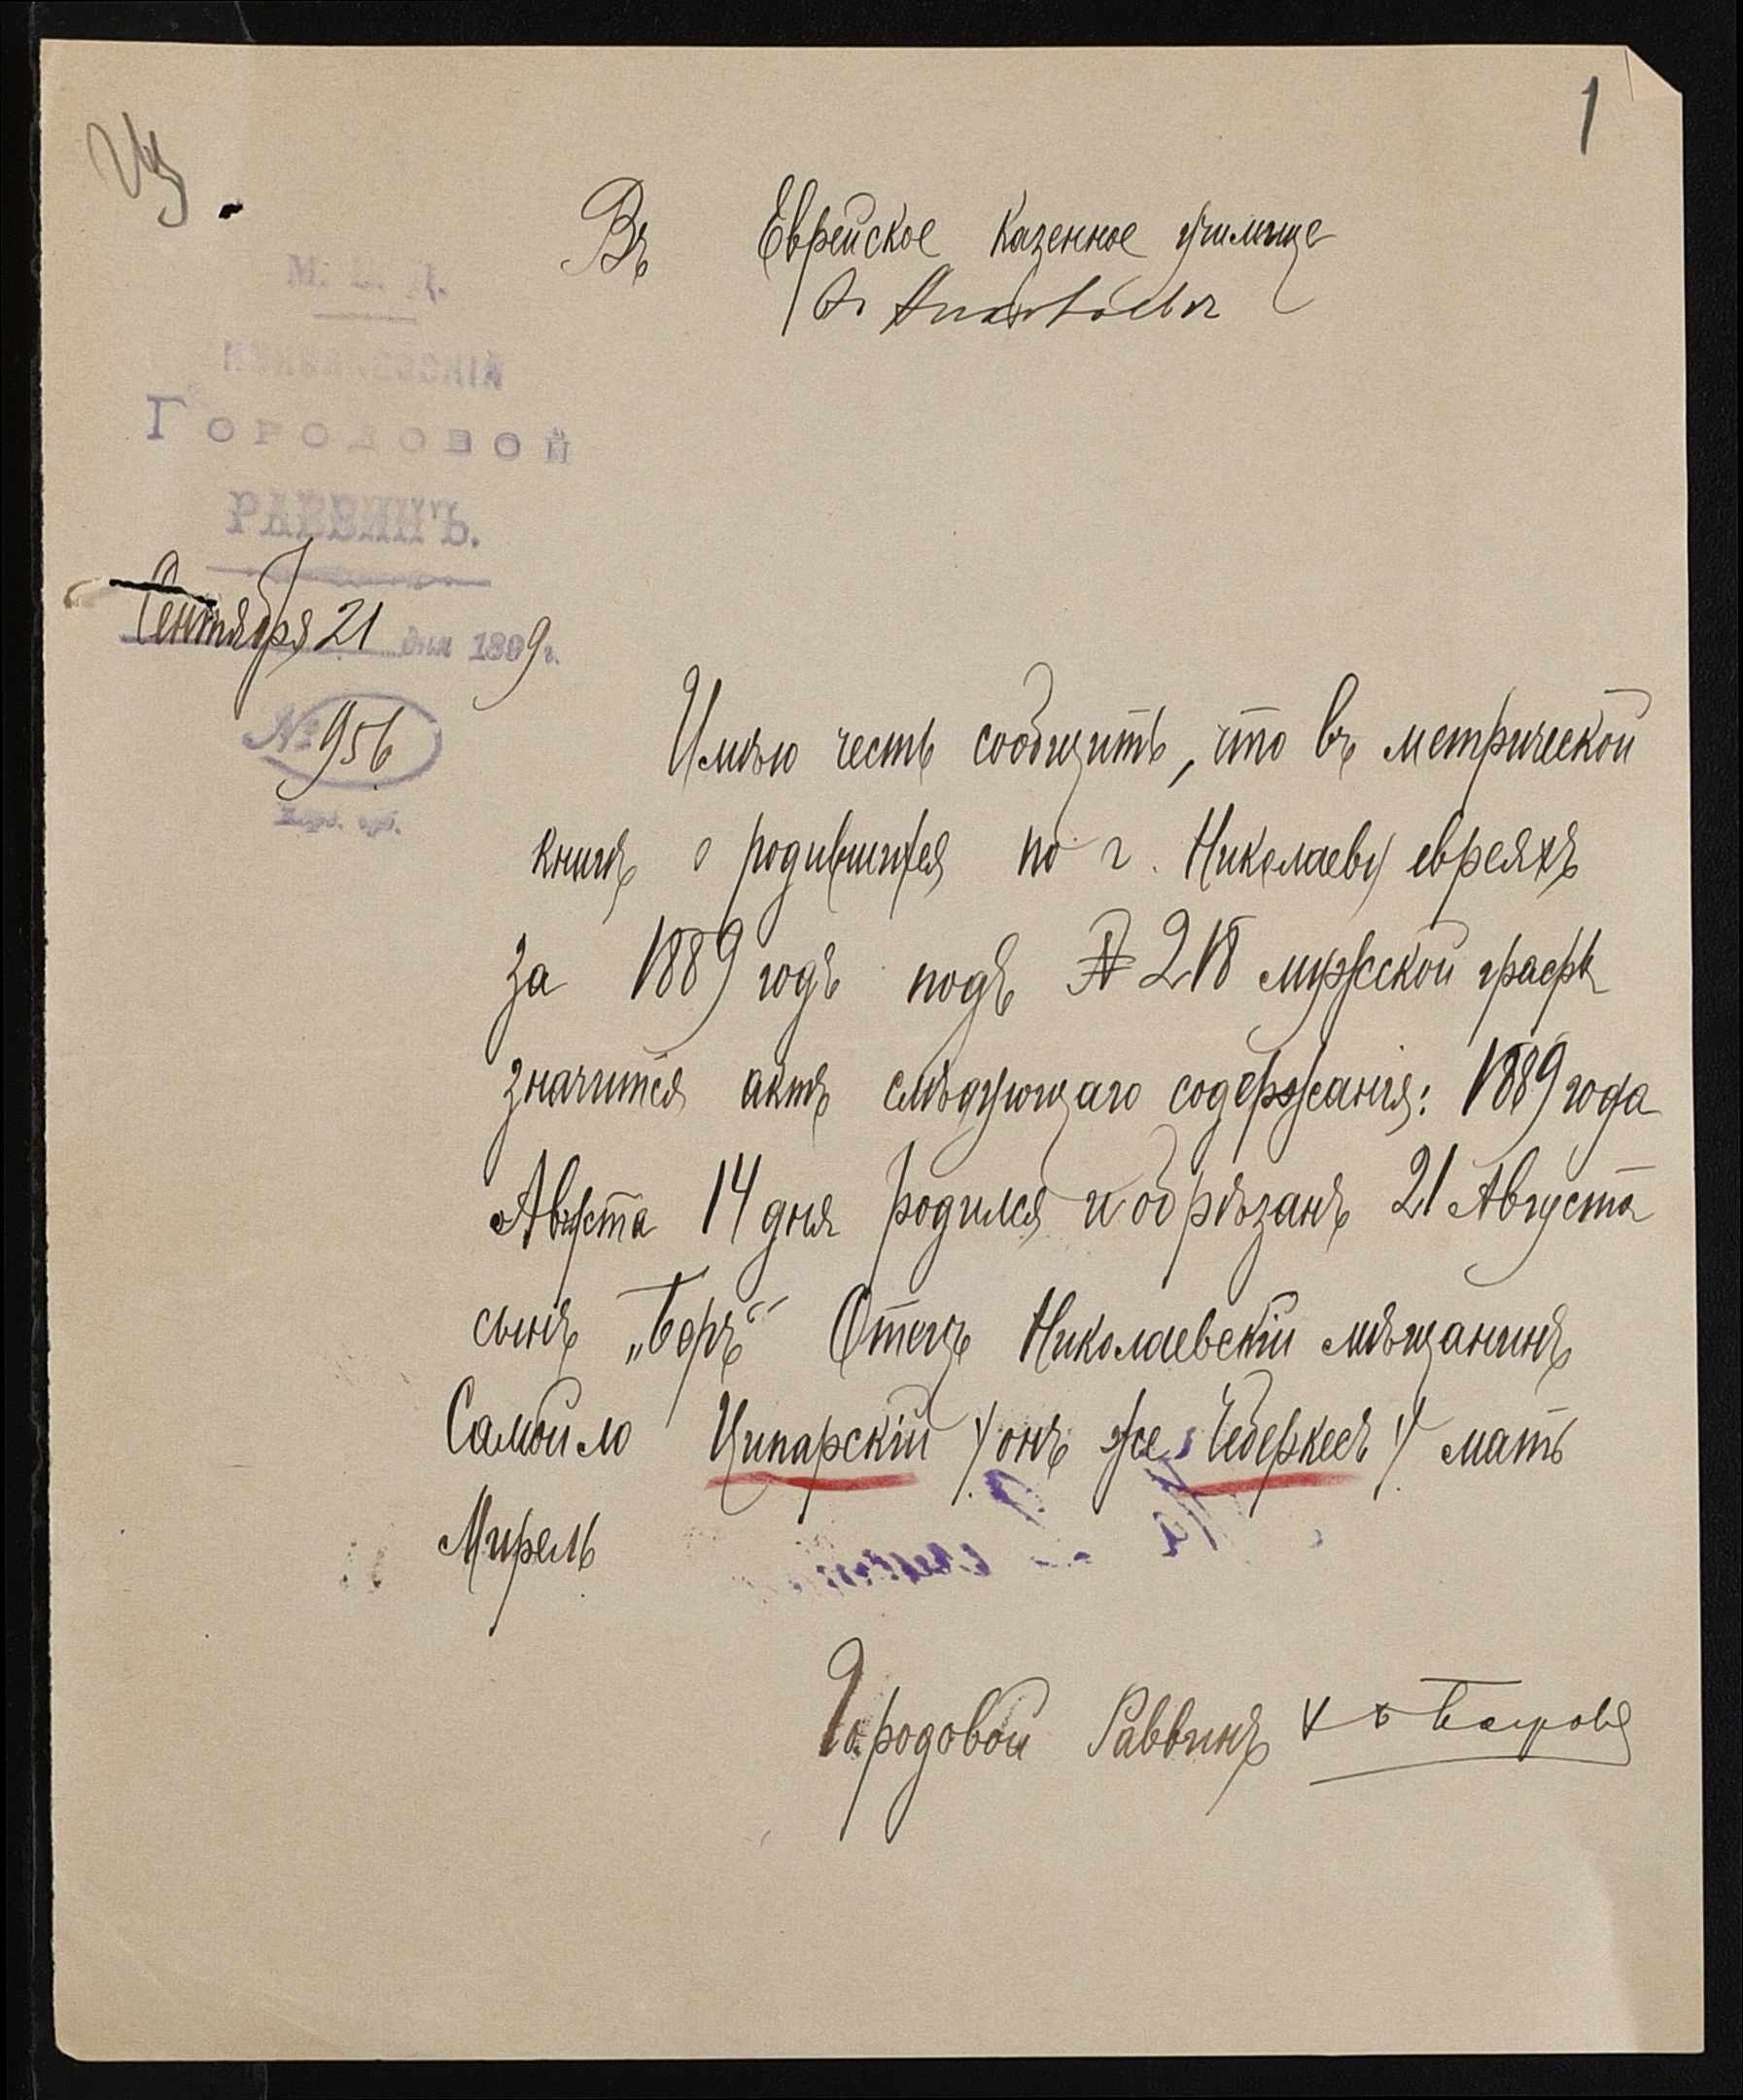 1
Въ Еврейское казенное училище
М. В. Д.
НИКОЛАЕВСКІЙ
ГОРОДОВОЙ
РАВВИНЪ.
Сентября 21 дня 1899 г.
№ 956
Имѣю честь сообщить, что въ метрической
книгѣ о родившихся по г. Николаеву евреяхъ
за 1889 годъ подъ № 218 мужской графы
значится актъ слѣдующаго содержанія: 1889 года
Августа 14 дня родился и обрѣзанъ 21 Августа
сынъ „Беръ“ Отецъ Николаевскій мѣщанинъ
Самойло Ципарскій (онъ же Чеберкесъ) мать
Мирель
Городовой Раввинъ